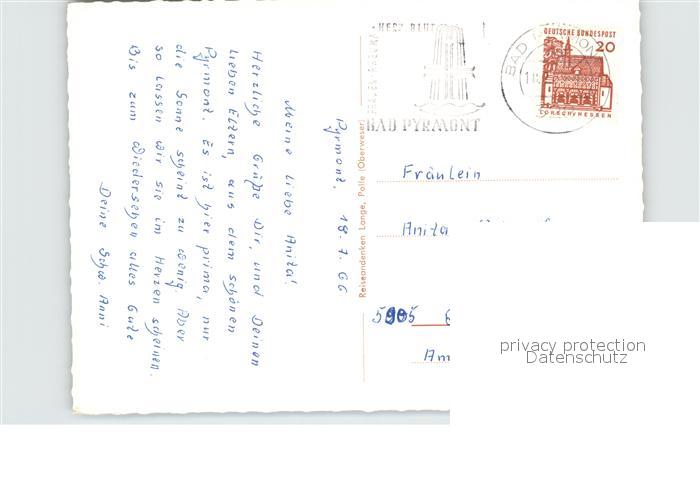 HERZ BLUT
BAD PYRMONT
BAD
DEUTSCHE BUNDESPOST
20
LORSCH/HESSEN
Pyrmont, 18.7.66
Meine liebe Anita!
Herzliche Grüße Dir, und Deinen
lieben Eltern, aus dem schönen
Pyrmont. Es ist hier prima, nur
die Sonne scheint zu wenig Aber
so lassen wir sie im Herzen scheinen.
Bis zum Wiedersehen alles Gute
Deine Anni
Reiseandenken Lange, Polle (Oberweser)
Fräulein
Anita
5905
Am
privacy protection
Datenschutz